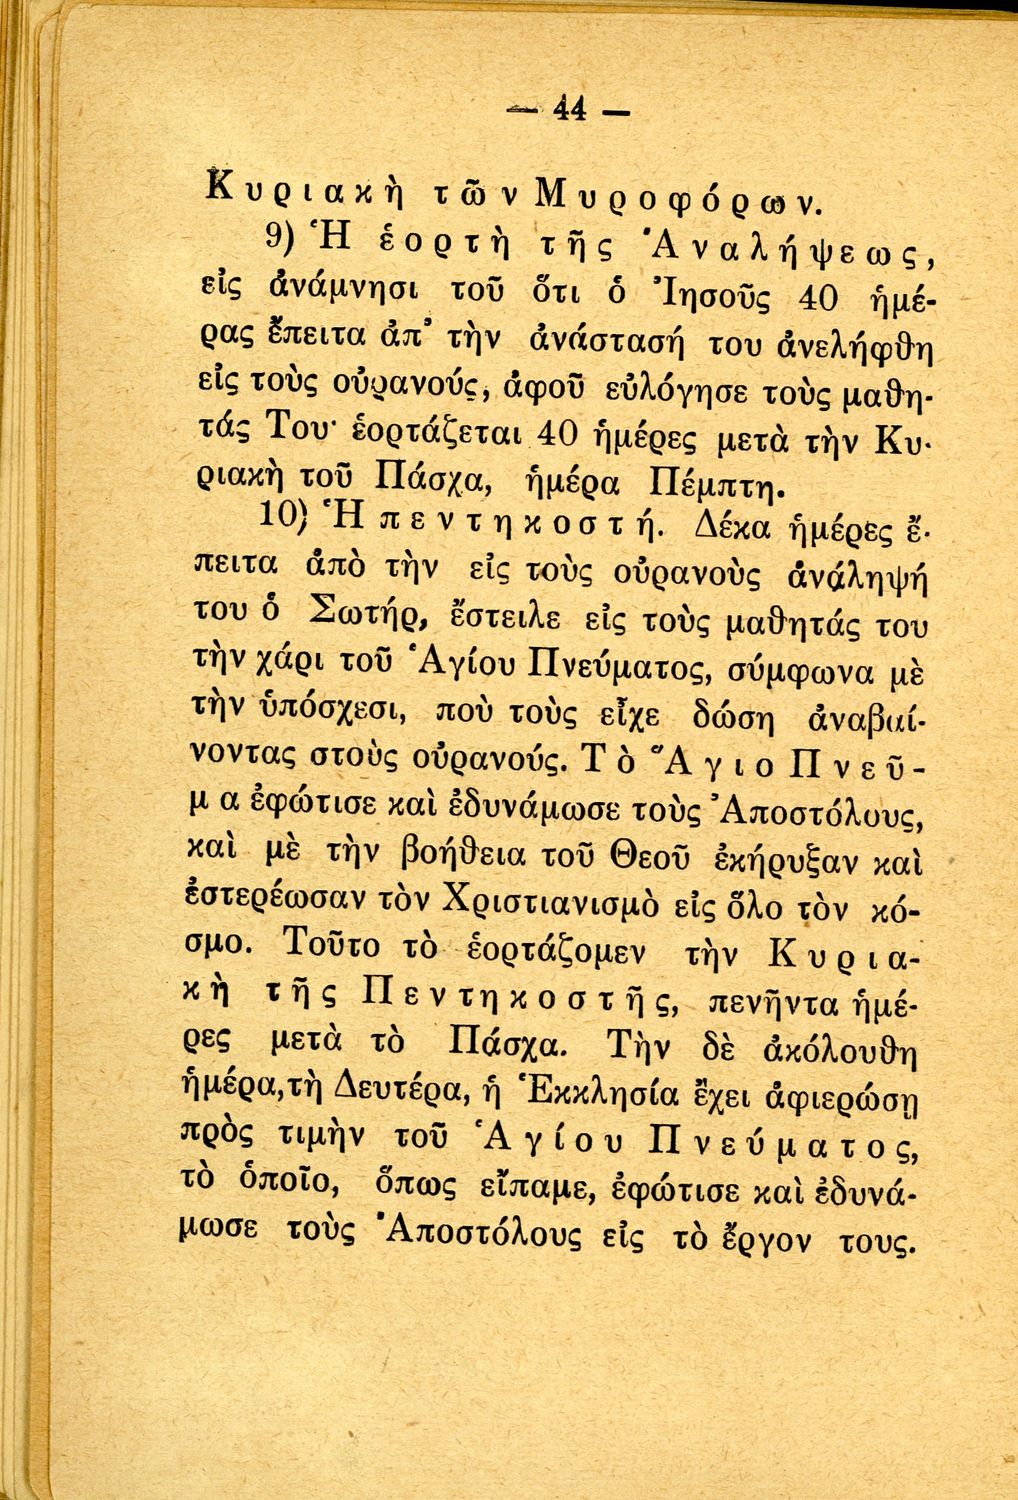 — 44 —
Κυριακὴ τῶν Μυροφόρων.
9) Ἡ ἑορτὴ τῆς Ἀναλήψεως,
εἰς ἀνάμνησι τοῦ ὅτι ὁ Ἰησοῦς 40 ἡμέ-
ρας ἔπειτα ἀπ’ τὴν ἀνάστασή του ἀνελήφθη
εἰς τοὺς οὐρανούς, ἀφοῦ εὐλόγησε τοὺς μαθη-
τάς Του· ἑορτάζεται 40 ἡμέρες μετὰ τὴν Κυ-
ριακὴ τοῦ Πάσχα, ἡμέρα Πέμπτη.
10) Ἡ πεντηκοστή. Δέκα ἡμέρες ἔ-
πειτα ἀπὸ τὴν εἰς τοὺς οὐρανοὺς ἀνάληψή
του ὁ Σωτήρ, ἔστειλε εἰς τοὺς μαθητάς του
τὴν χάρι τοῦ Ἁγίου Πνεύματος, σύμφωνα μὲ
τὴν ὑπόσχεσι, ποὺ τοὺς εἶχε δώση ἀναβαί-
νοντας στοὺς οὐρανούς. Τὸ Ἅγιο Πνεῦ-
μα ἐφώτισε καὶ ἐδυνάμωσε τοὺς Ἀποστόλους,
καὶ μὲ τὴν βοήθεια τοῦ Θεοῦ ἐκήρυξαν καὶ
ἐστερέωσαν τὸν Χριστιανισμὸ εἰς ὅλο τὸν κό-
σμο. Τοῦτο τὸ ἑορτάζομεν τὴν Κυρια-
κὴ τῆς Πεντηκοστῆς, πενῆντα ἡμέ-
ρες μετὰ τὸ Πάσχα. Τὴν δὲ ἀκόλουθη
ἡμέρα, τὴ Δευτέρα, ἡ Ἐκκλησία ἔχει ἀφιερώσῃ
πρὸς τιμὴν τοῦ Ἁγίου Πνεύματος,
τὸ ὁποῖο, ὅπως εἴπαμε, ἐφώτισε καὶ ἐδυνά-
μωσε τοὺς Ἀποστόλους εἰς τὸ ἔργον τους.